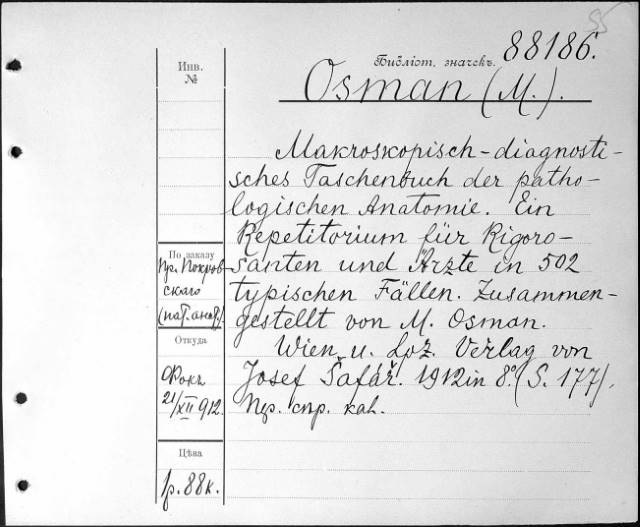 55
Библіот. значекъ. 88186.
Osman (M.).
Инв.
№
Makroskopisch-diagnosti-
sches Taschenbuch der patho-
logischen Anatomie. Ein
Repetitorium für Rigoro-
santen und Ärzte in 502
typischen Fällen. Zusammen-
gestellt von M. Osman.
Wien u. Lpz. Verlag von
Josef Šafář. 1912 in 8º. (S. 177).
По заказу
Пр. Покров-
скаго
(пат. анат.)
Откуда
Фокъ
21/XII 912.
Цѣна
1р. 88к.